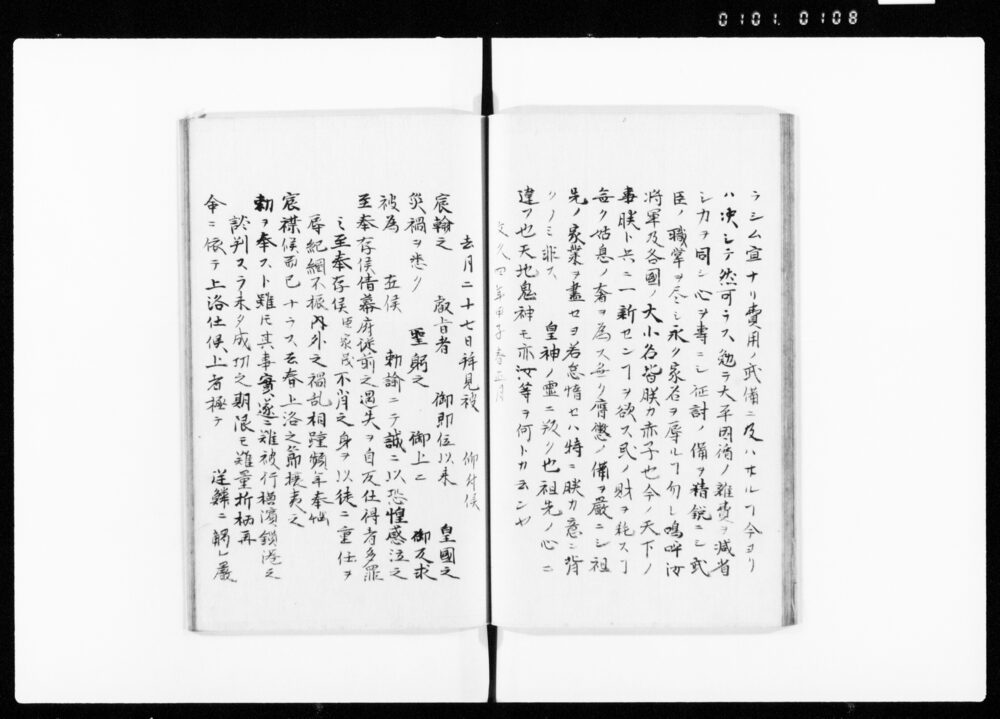 0101. 0108
ラシム宜ナリ費用ノ武備ニ及ハサルヿ今ヨリ
ハ決シテ然可ラス勉テ太平因循ノ雑費ヲ減省
シ力ヲ同シ心ヲ専ニシ征討ノ備ヲ精鋭ニシ武
臣ノ職掌ヲ尽シ永ク家名ヲ辱ルヿ勿レ嗚呼汝
将軍及各國ノ大小名皆朕カ赤子也今ノ天下ノ
事朕ト共ニ一新センヿヲ欲ス民ノ財ヲ耗スヿ
無ク姑息ノ奢ヲ為ス無ク膺懲ノ備ヲ嚴ニシ祖
先ノ家業ヲ盡セヨ若怠惰セハ特ニ朕カ意ニ背
クノミ非ス 皇神ノ靈ニ叛ク也祖先ノ心ニ
違フ也天地鬼神モ亦汝等ヲ何トカ云ンヤ
文久四年甲子春正月
去月二十七日拝見被 仰付候
宸翰之 叡旨者 御即位以来 皇國之
災禍ヲ悉ク 聖躬之 御上ニ 御反求
被為 在候 勅諭ニテ誠ニ以恐惶感泣之
至奉存候偖幕府従前之過失ヲ自反仕得者多罪
之至奉存候臣家茂不肖之身ヲ以徒ニ重任ヲ
辱紀綱不振内外之禍乱相踵頻年奉悩
宸襟候而已ナラス去春上洛之節攘夷之
勅ヲ奉スト雖モ其事實遂ニ難被行横濱鎖港之
談判スラ未タ成功之期限モ難量折柄再
命ニ依テ上洛仕候上者極テ 逆鱗ニ觸レ嚴